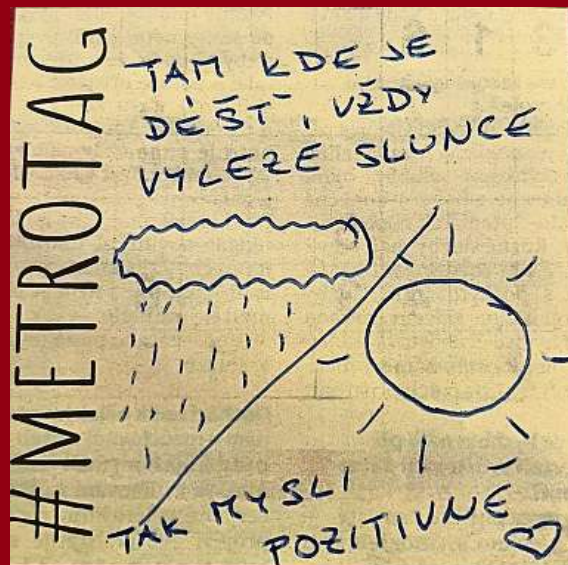 #METROTAG
TAM KDE JE
DÉŠŤ, VŽDY
VYLEZE SLUNCE
TAK MYSLI
POZITIVNE